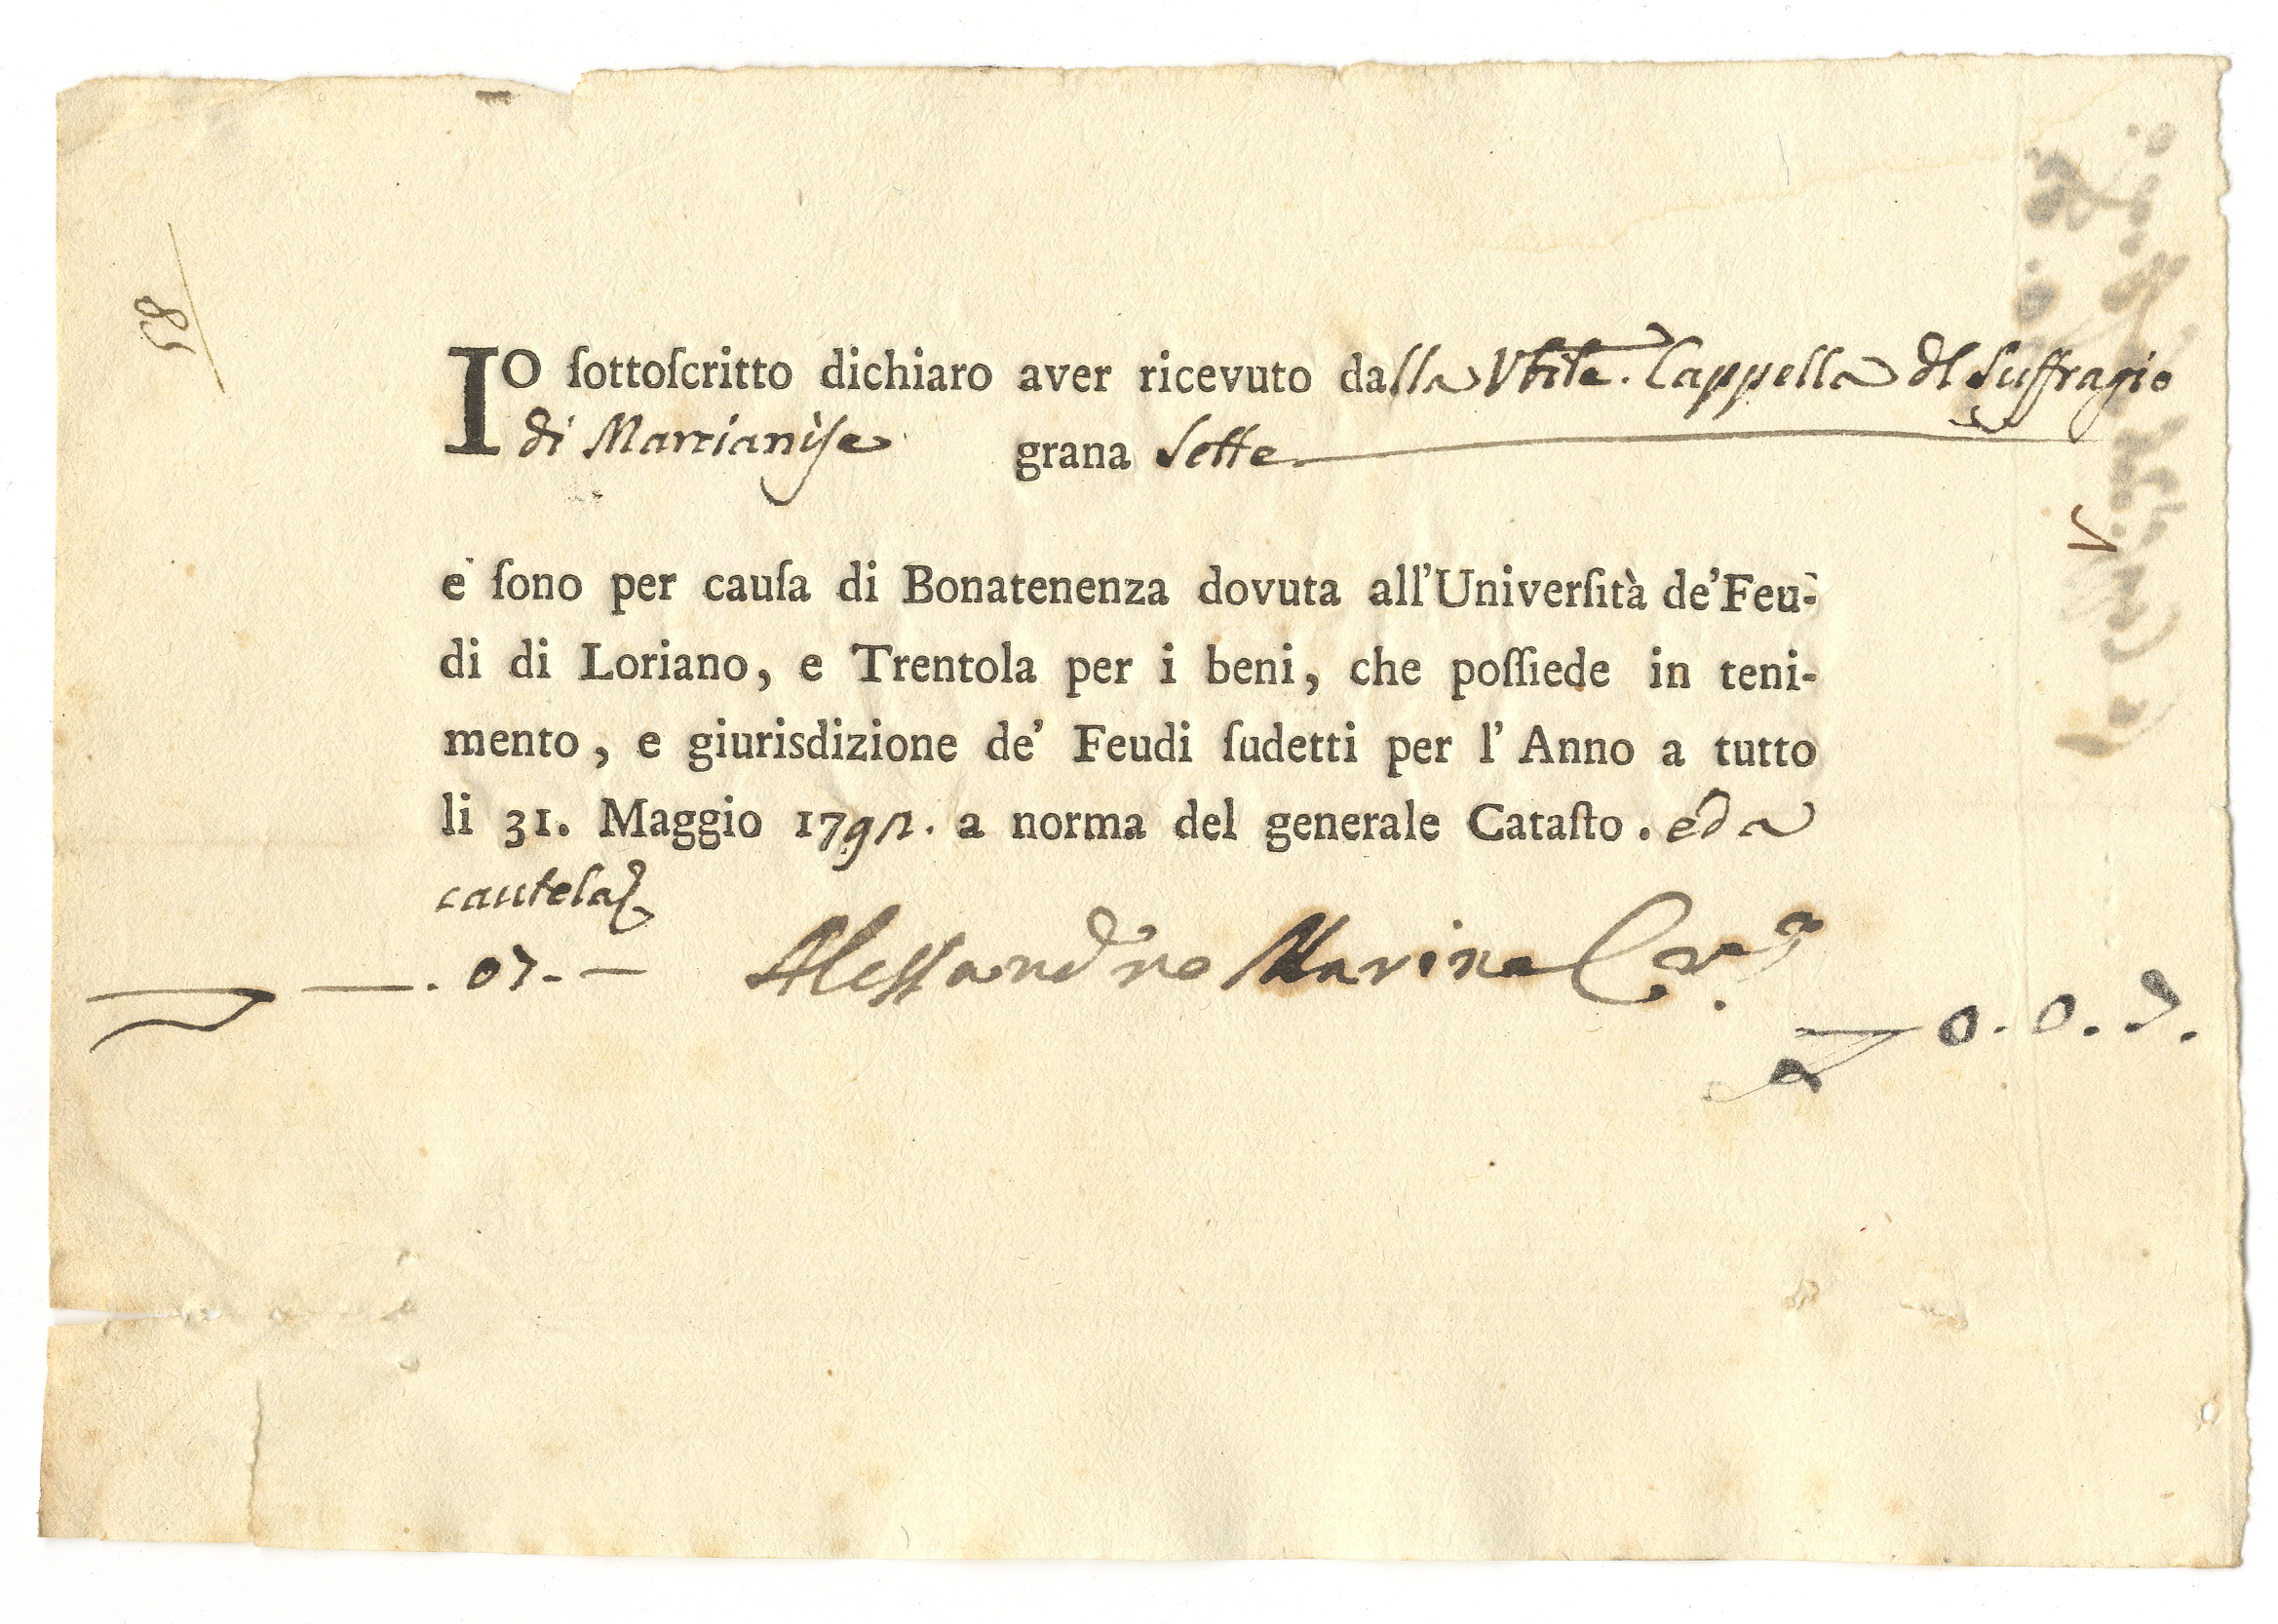 58
IO ſottoſcritto dichiaro aver ricevuto dalla Vbile. Cappella dl Suffragio
di Marcianiſe grana Sette
e ſono per cauſa di Bonatenenza dovuta all'Univerſità de' Feu-
di di Loriano, e Trentola per i beni, che poſſiede in teni-
mento, e giurisdizione de' Feudi ſudetti per l' Anno a tutto
li 31. Maggio 179 . a norma del generale Cataſto. ed a
cautela
. 07. — Alessandro Marina
0. 0. 7.